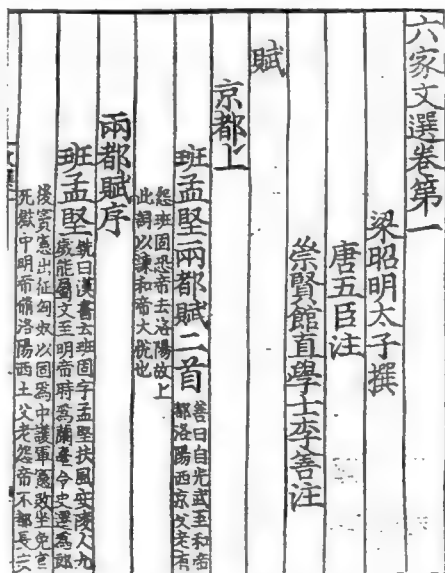 六家文選卷第一
梁昭明太子撰
唐五臣注
崇賢館直學士李善注
賦
京都上
班孟堅兩都賦二首
善曰自光武至和帝
都洛陽西京父老有
怨班固恐帝去洛陽故上
此詞以諫和帝大悅也
兩都賦序
班孟堅
銑曰漢書云班固字孟堅扶風安陵人九
歲能屬文至明帝時為蘭臺令史遷為郎
後竇憲出征匈奴以固為中護軍憲敗坐免官
死獄中明帝脩洛陽西土父老怨帝不都長安